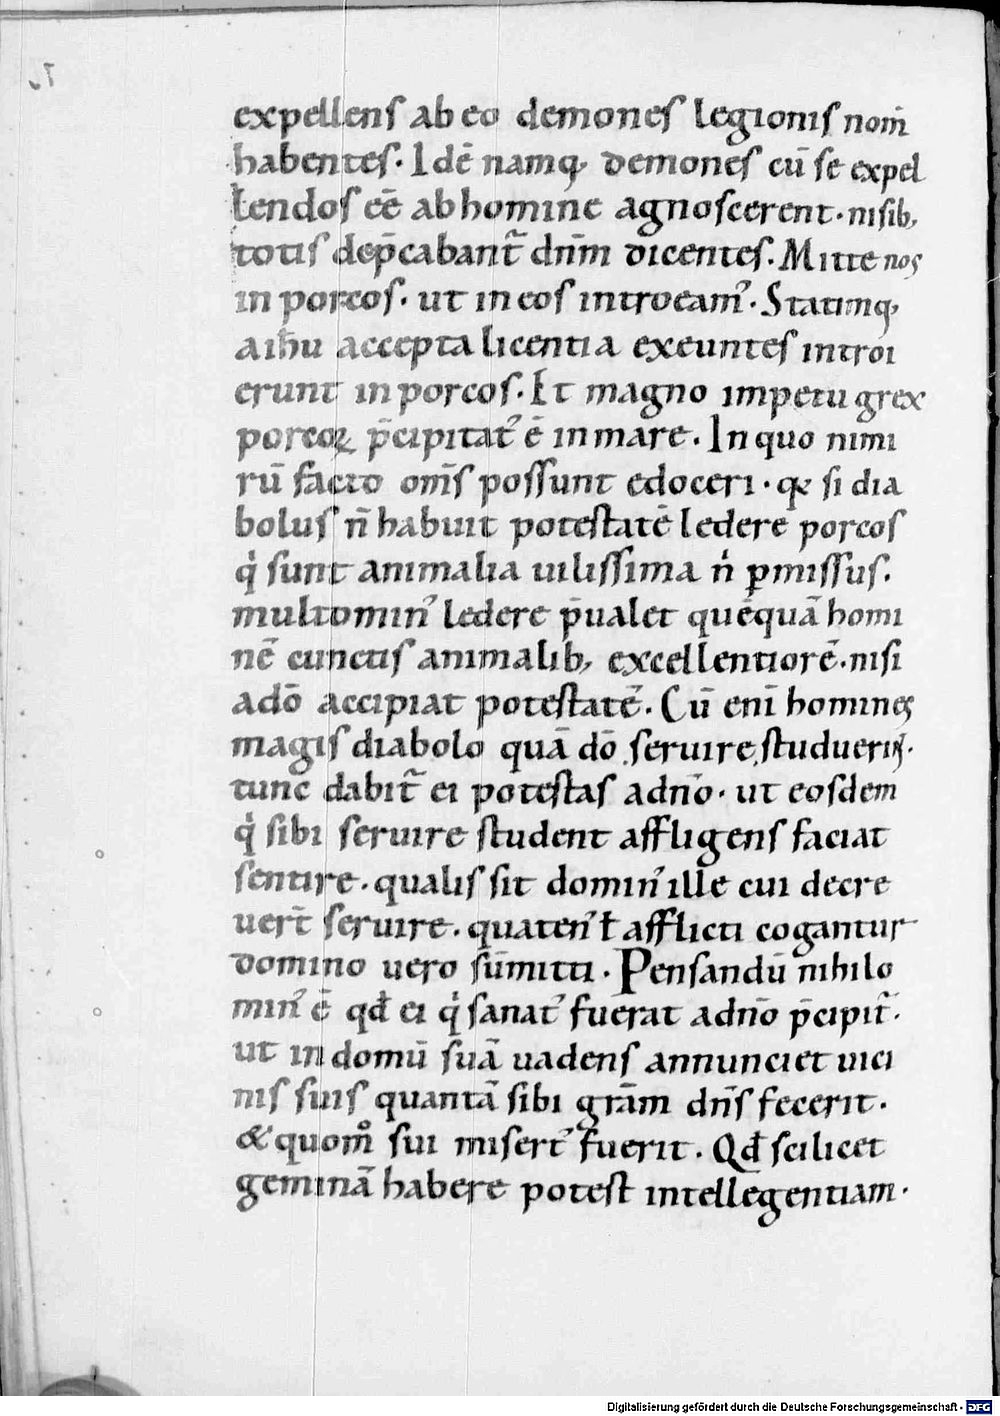 expellens ab eo demones legionis nom̄
habentes. Idē namq; demones cū se expel
lendos eē ab homine agnoscerent. nisib;
totis dep̄cabant᷑ dnm̄ dicentes. Mitte nos
in porcos. ut in eos introeam᷒. Statimq;
a ihu̅ accepta licentia exeuntes introi
erunt in porcos. Et magno impetu grex
porcoꝝ p̄cipitat᷒ ē in mare. In quo nimi
rū facto om̄s possunt edoceri. qꝛ si dia
bolus n̄ habuit potestatē ledere porcos
qͥ sunt animalia uilissima nͥ ꝑmissus.
multo min᷒ ledere p̄ualet quēquā homi
nē cunctis animalib; excellentiorē. nisi
a dō accipiat potestatē. Cū enī homines
magis diabolo quā dō seruire studuerin̄t.
tunc dabit᷑ ei potestas a dn̄o. ut eosdem
qͥ sibi seruire student affligens faciat
sentire. qualis sit domin᷒ ille cui decre
uer̄t seruire. quaten᷒ ł afflicti cogantur
domino uero sūmitti. Pensandū nihilo
min᷒ ē qđ ei qͥ sanat᷒ fuerat a dn̄o p̄cipit᷑.
ut in domū suā uadens annunciet uici
nis suis quantā sibi grām dn̄s fecerit.
& quom̊ sui misert᷒ fuerit. Qđ scilicet
geminā habere potest intellegentiam.
Digitalisierung gefördert durch die Deutsche Forschungsgemeinschaft - DFG